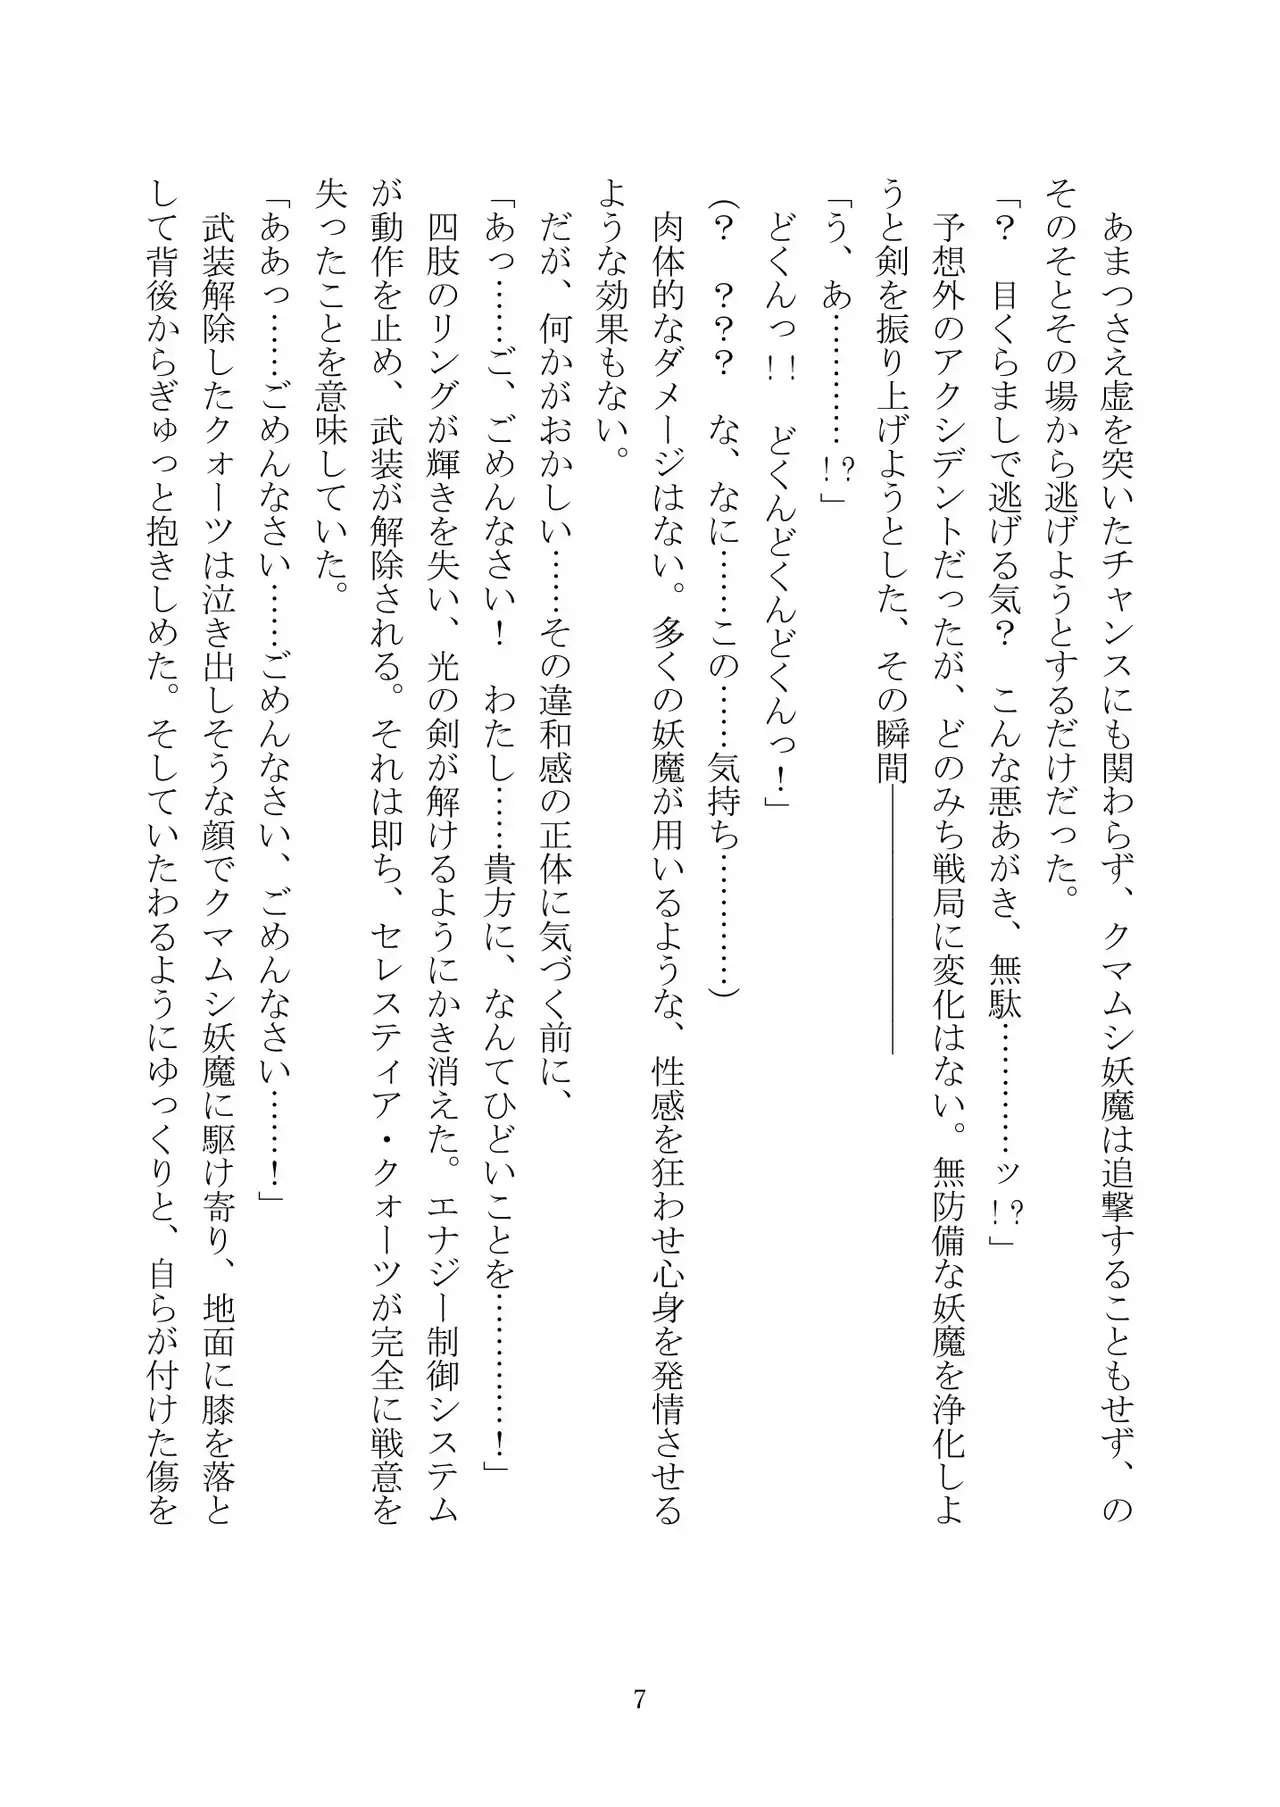 あまつさえ虚を突いたチャンスにも関わらず、クマムシ妖魔は追撃することもせず、の
そのそとその場から逃げようとするだけだった。
「？　目くらましで逃げる気？　こんな悪あがき、無駄…………ッ!?」
予想外のアクシデントだったが、どのみち戦局に変化はない。無防備な妖魔を浄化しよ
うと剣を振り上げようとした、その瞬間――――――――
「う、あ…………!?」
どくんっ!!　どくんどくんどくんっ！」
（？　？？？　な、なに……この……気持ち…………）
肉体的なダメージはない。多くの妖魔が用いるような、性感を狂わせ心身を発情させる
ような効果もない。
だが、何かがおかしい……その違和感の正体に気づく前に、
「あっ……ご、ごめんなさい！　わたし……貴方に、なんてひどいことを…………！」
四肢のリングが輝きを失い、光の剣が解けるようにかき消えた。エナジー制御システム
が動作を止め、武装が解除される。それは即ち、セレスティア・クォーツが完全に戦意を
失ったことを意味していた。
「ああっ……ごめんなさい……ごめんなさい、ごめんなさい……！」
武装解除したクォーツは泣き出しそうな顔でクマムシ妖魔に駆け寄り、地面に膝を落と
して背後からぎゅっと抱きしめた。そしていたわるようにゆっくりと、自らが付けた傷を
7